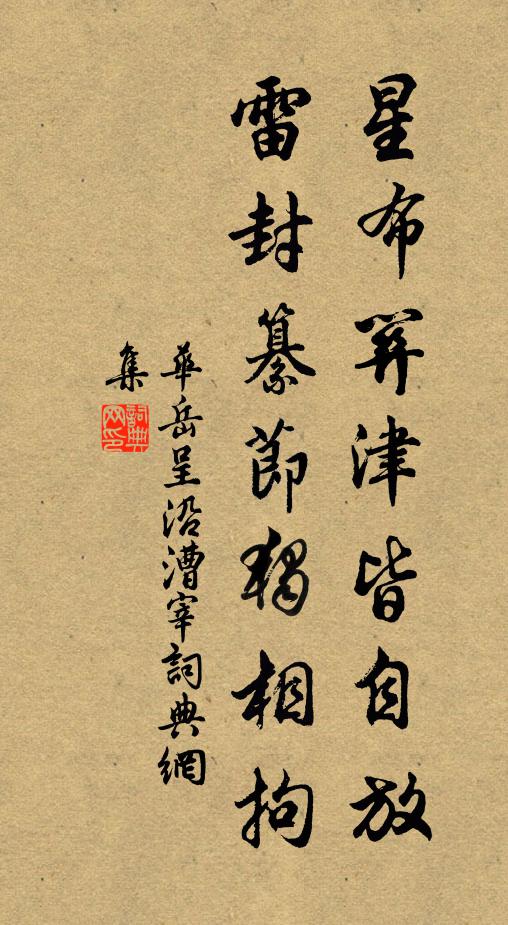 星布關津皆自放
雷封纂節獨相拘
華岳呈沿漕宰詞典網
集
詞典
网印